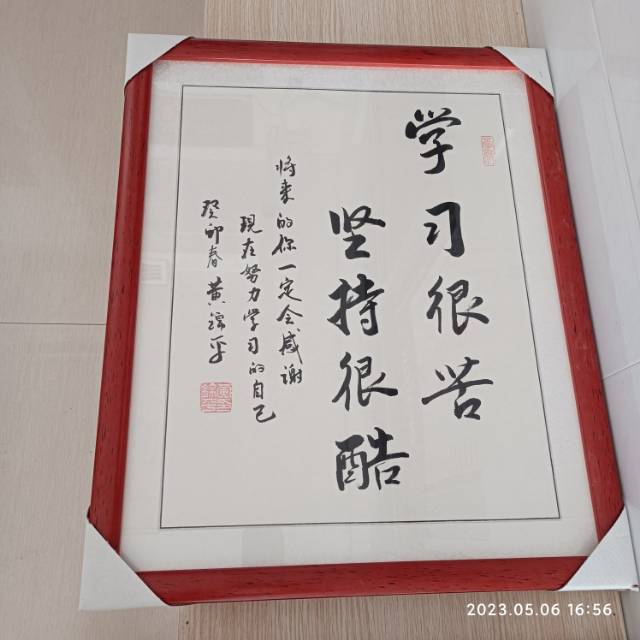 学习很苦
坚持很酷
将来的你一定会感谢
现在努力学习的自己
癸卯春黄锦平
2023.05.06 16:56